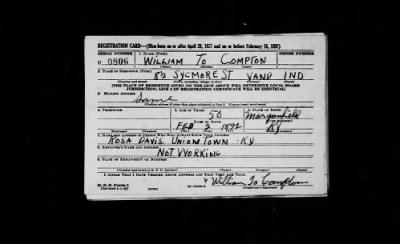 REGISTRATION CARD—(Men born on or after April 28, 1877 and on or before February 16, 1897)
SERIAL NUMBER 1. NAME (Print) ORDER NUMBER
U 0806 WILLIAM TO COMPTON
(First) (Middle) (Last)
2. PLACE OF RESIDENCE (Print)
8½ SYCMORE ST VAND IND
[THE PLACE OF RESIDENCE GIVEN ON THE LINE ABOVE WILL DETERMINE LOCAL BOARD
JURISDICTION; LINE 2 OF REGISTRATION CERTIFICATE WILL BE IDENTICAL]
3. MAILING ADDRESS
Same
4. TELEPHONE 5. AGE IN YEARS 6. PLACE OF BIRTH
50 Morganfield
DATE OF BIRTH
FEB 2 1892 KY
7. NAME AND ADDRESS OF PERSON WHO WILL ALWAYS KNOW YOUR ADDRESS
ROSA DAVIS. UNION TOWN - KY
8. EMPLOYER'S NAME AND ADDRESS
NOT WORKING
9. PLACE OF EMPLOYMENT OR BUSINESS
I AFFIRM THAT I HAVE VERIFIED ABOVE ANSWERS AND THAT THEY ARE TRUE.
William To Compton